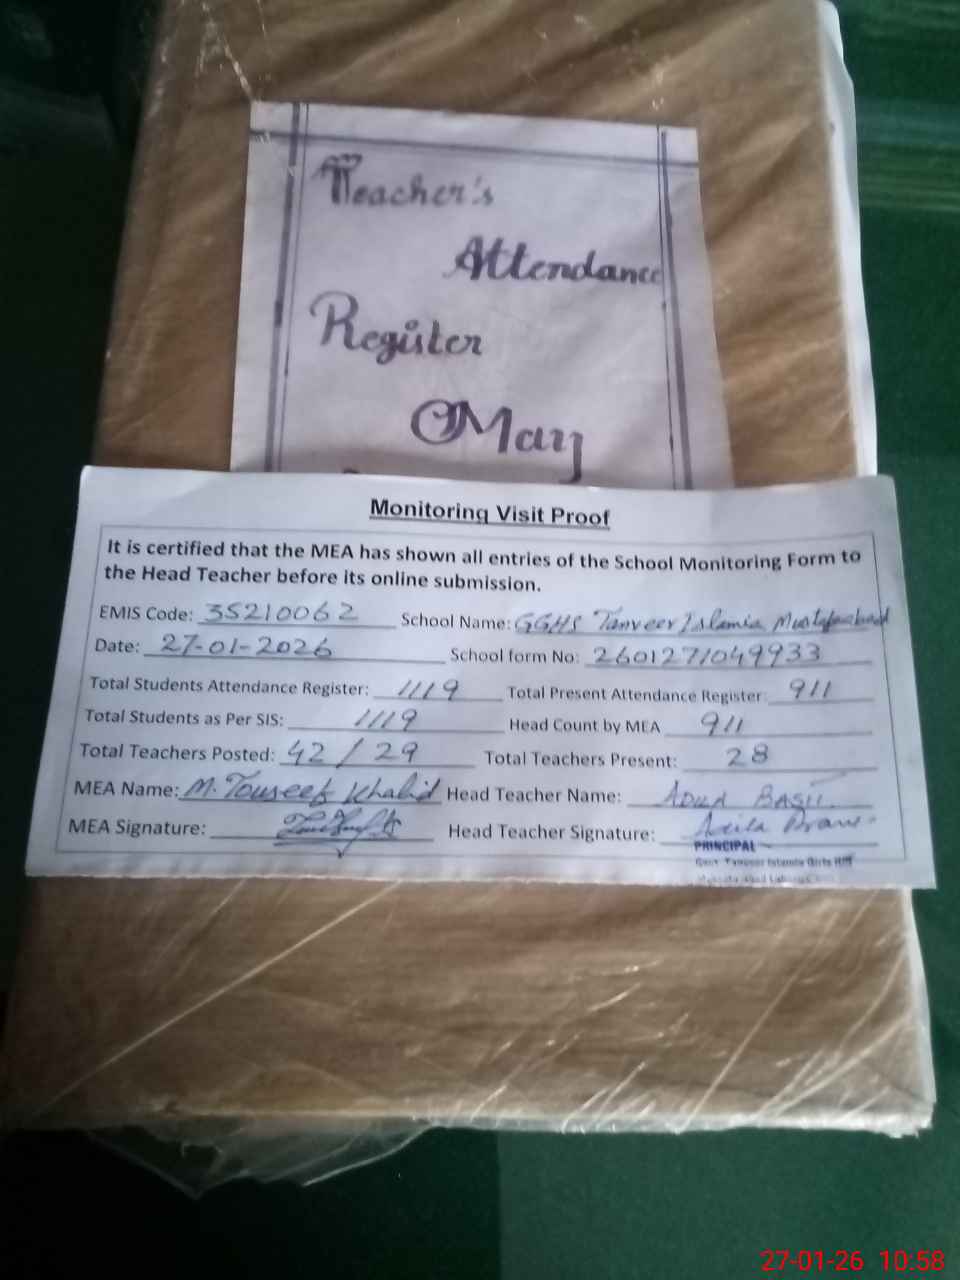 Teacher's
Attendance
Register
May
Monitoring Visit Proof
It is certified that the MEA has shown all entries of the School Monitoring Form to
the Head Teacher before its online submission.
EMIS Code: 35210062 School Name: GGHS Tanveer Islamia Mustafaabad
Date: 27-01-2026 School form No: 2601271049933
Total Students Attendance Register: 1119 Total Present Attendance Register: 911
Total Students as Per SIS: 1119 Head Count by MEA 911
Total Teachers Posted: 42 / 29 Total Teachers Present: 28
MEA Name: M. Touseef Khalid Head Teacher Name: Adila
MEA Signature: Head Teacher Signature: Adila
PRINCIPAL
Govt. Tanveer Islamia Girls
27-01-26 10:58